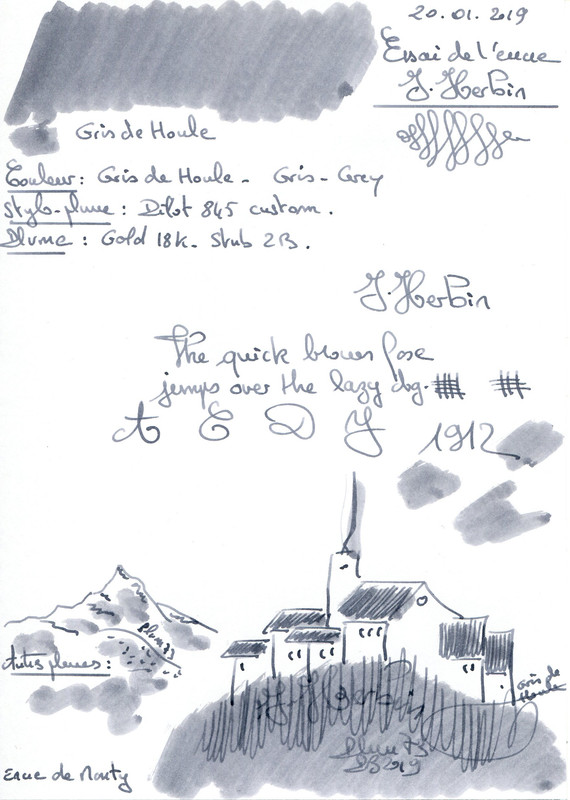 20.01.2019
Essai de l'encre
J. Herbin
Gris de Houle
Couleur : Gris de Houle - Gris - Grey
Stylo-plume : Pilot 845 custom.
Plume : Gold 18k. Stub 2B.
J. Herbin
The quick brown foxe
jumps over the lazy dog.
A E D J 1912
plum73
Autres plumes :
Gris de
Houle
J. Herbin
Plum73
2019
Encre de Monty